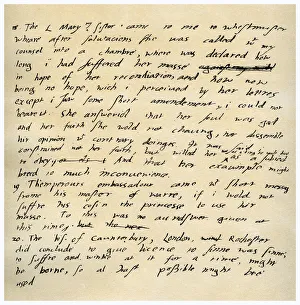 18. The L. Mary my sister came to me to westminster
wheare after salutacions she was called w my
counsel into a chambre, where was declared how
long i had suffered her masse against my will
in hope of her reconciliation, and how now
being no hope, wich i perceived by her lettres
except i saw some short amendement, i could not
beare it. She answerid that her soul was god
and her faith she wold not chaung, nor dissemble
his opinion w contrary doinges. It was said i
constrained not her faith but willed her
to obey as a subiect And that her exaumple might
breed to much inconvenience.
19. Themperours embassadour came w short messag
from his master of warre, if i would not
suffre his cosin the princesse to use her
masse. To this was no aunswer given at
this time,
20. The bs. of Caunterbury, London, Rochester
did conclude to give licence to sinne was sinne;
to suffre and winke at it for a time might
be borne, so al hast possible might bee
used